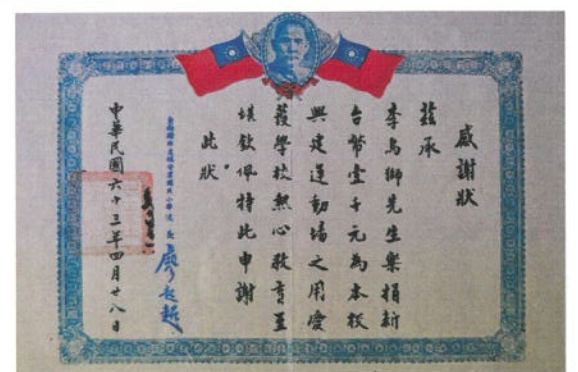 感謝狀
茲承
李烏獅先生樂捐新
台幣壹千元為本校
興建運動場之用愛
護學校熱心教育至
堪欽佩特此申謝
此狀
國民小學校長 廖
中華民國六十三年四月廿八日